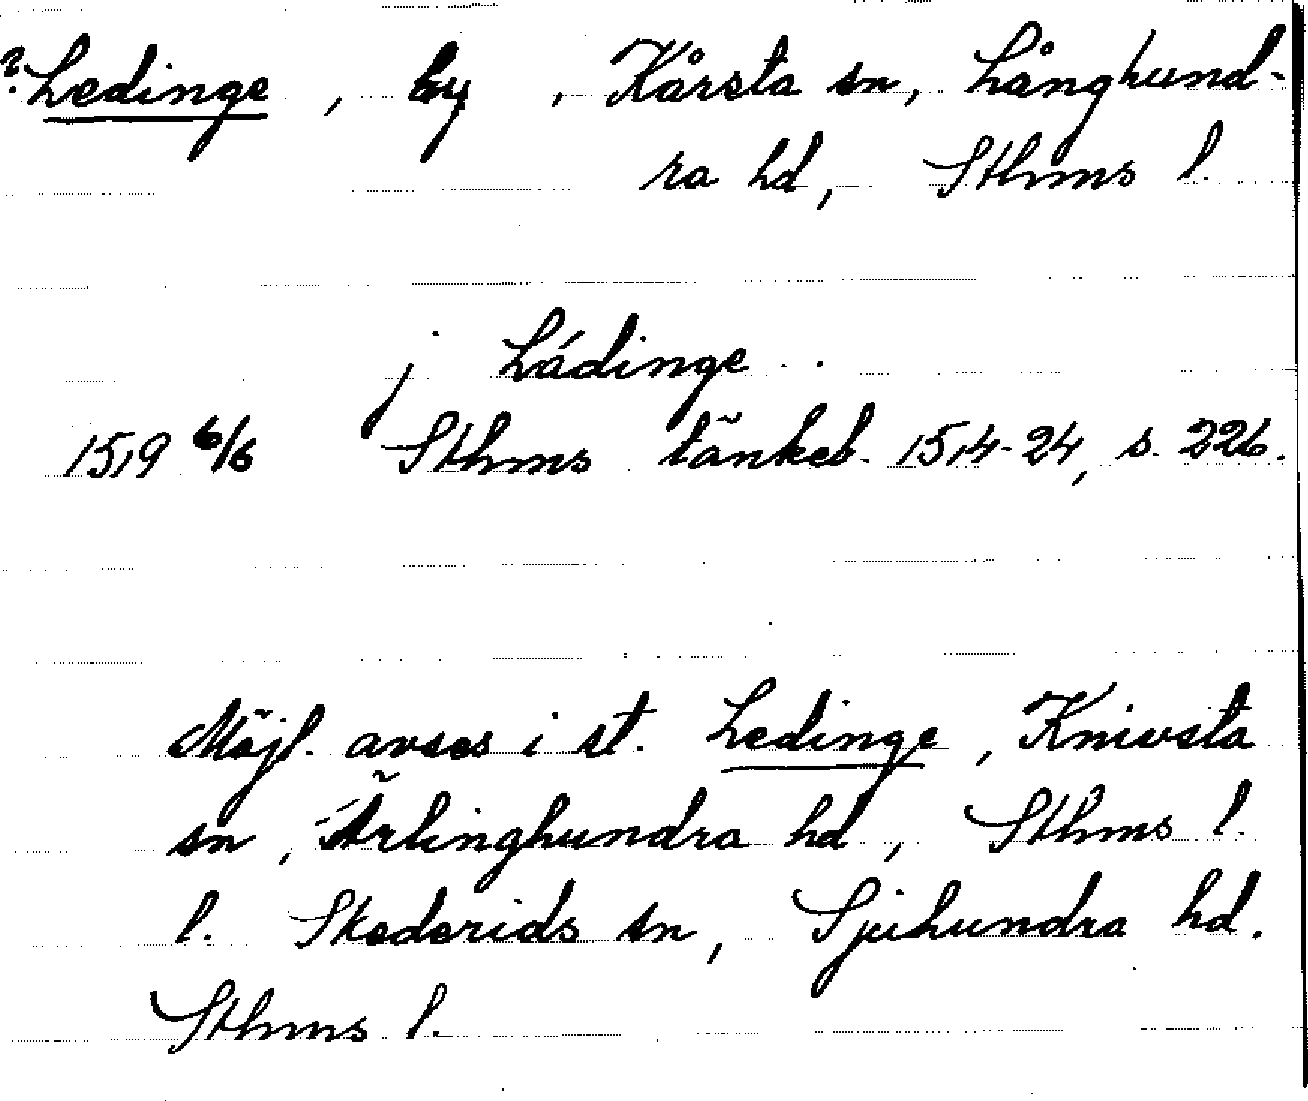 ? Ledinge, by, Kårsta sn, Långhund-
ra hd, Sthms l.
j Ládinge . .
1519 6/6 Sthms tänkeb. 1514-24, s. 226.
Möjl. avses i st. Ledinge, Knivsta
sn, Ärlinghundra hd, Sthms l.
l. Skederids sn, Sjuhundra hd.
Sthms l.